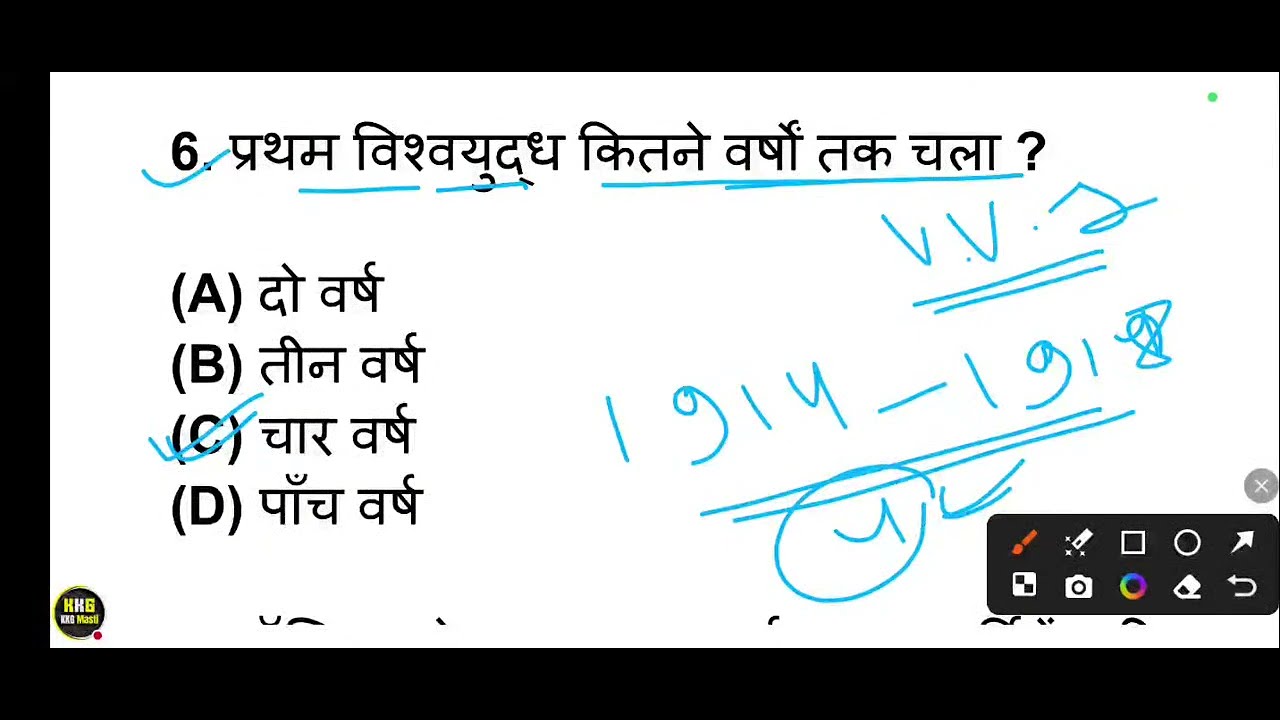 6. प्रथम विश्वयुद्ध कितने वर्षों तक चला ?
V.V.
(A) दो वर्ष
(B) तीन वर्ष
1914 – 1918
(C) चार वर्ष
(D) पाँच वर्ष
4
KKG
KKG Masti